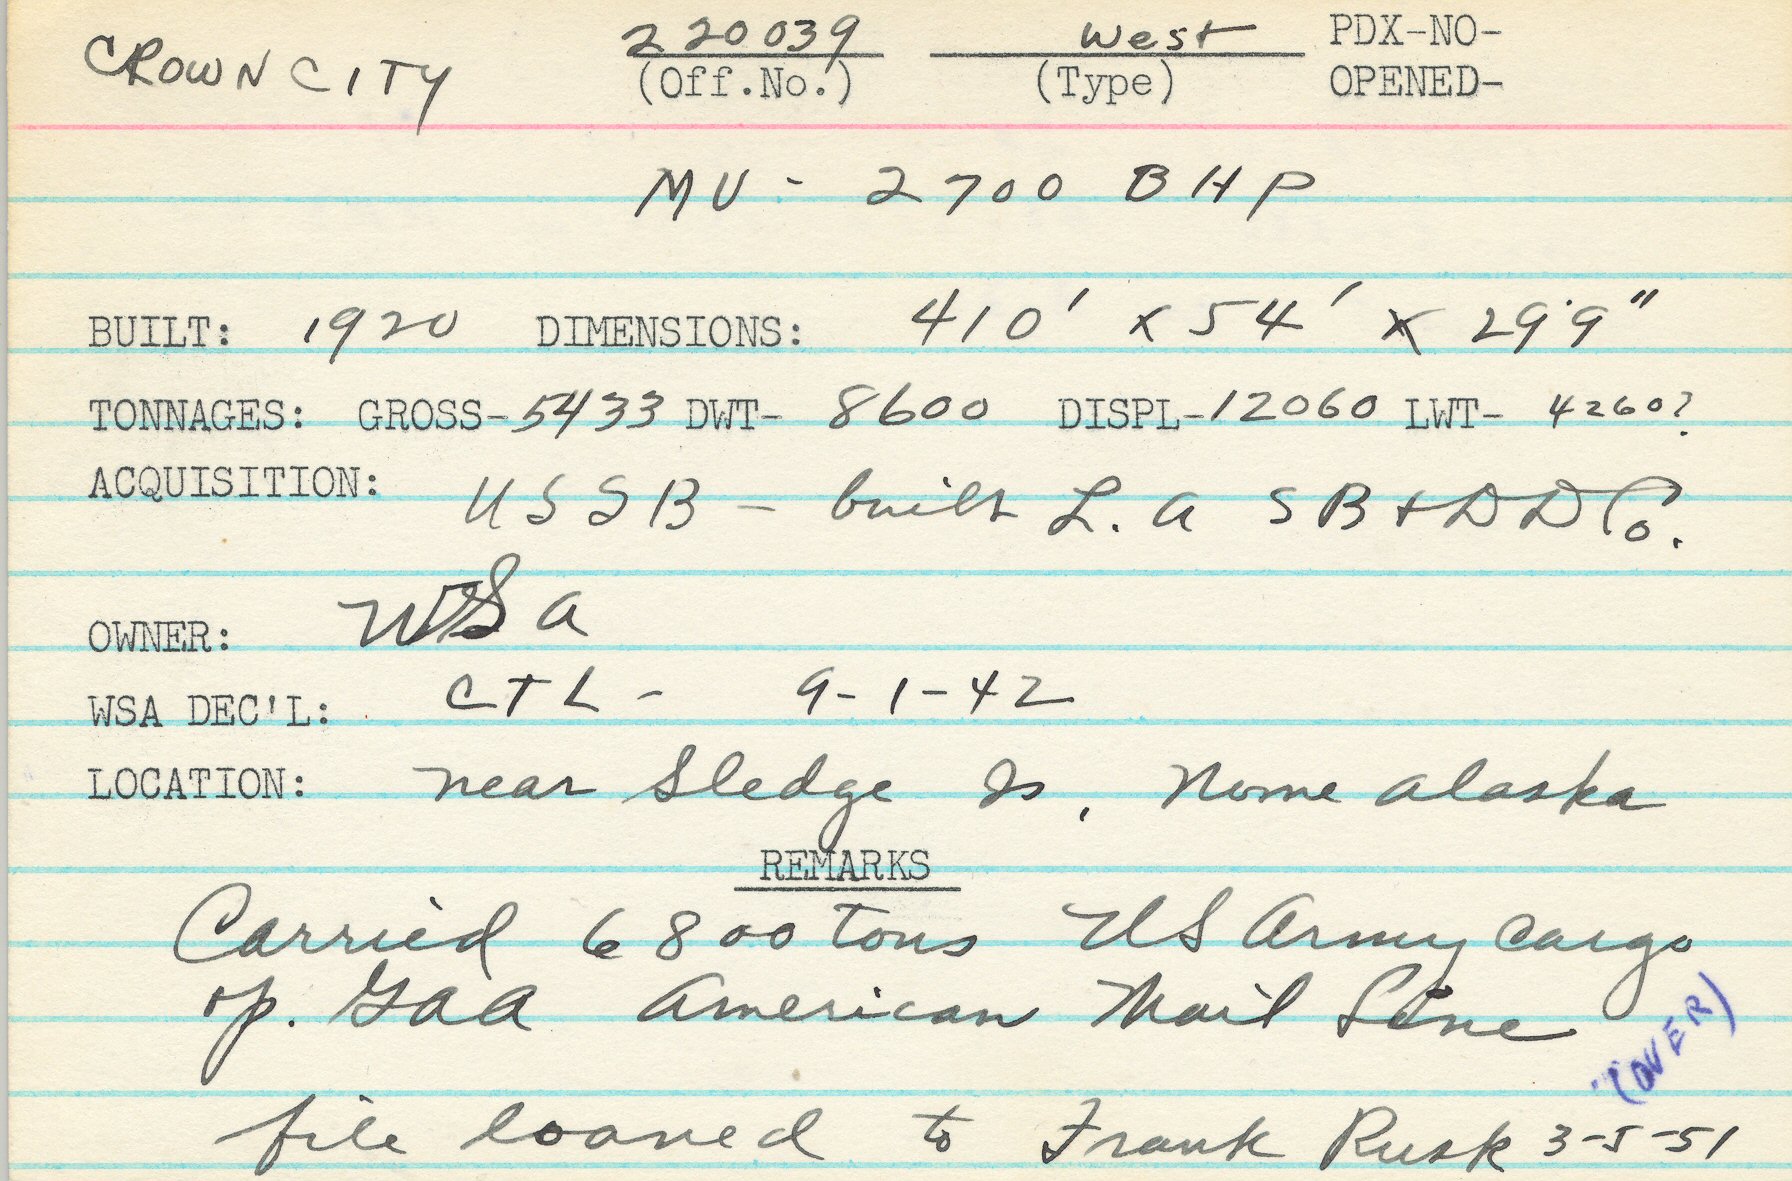 CROWN CITY 220039 West PDX-NO-
(Off.No.) (Type) OPENED-
MV - 2700 BHP
BUILT: 1920 DIMENSIONS: 410' x 54' x 29'9"
TONNAGES: GROSS-5433 DWT- 8600 DISPL-12060 LWT- 4260?
ACQUISITION: USSB - built L.A SB + DD Co.
OWNER: WSA
WSA DEC'L: CTL - 9-1-42
LOCATION: near Sledge Is, Nome Alaska
REMARKS
Carried 6800 tons US Army cargo
op. GAA American Mail Line
(OVER)
file loaned to Frank Rusk 3-5-51